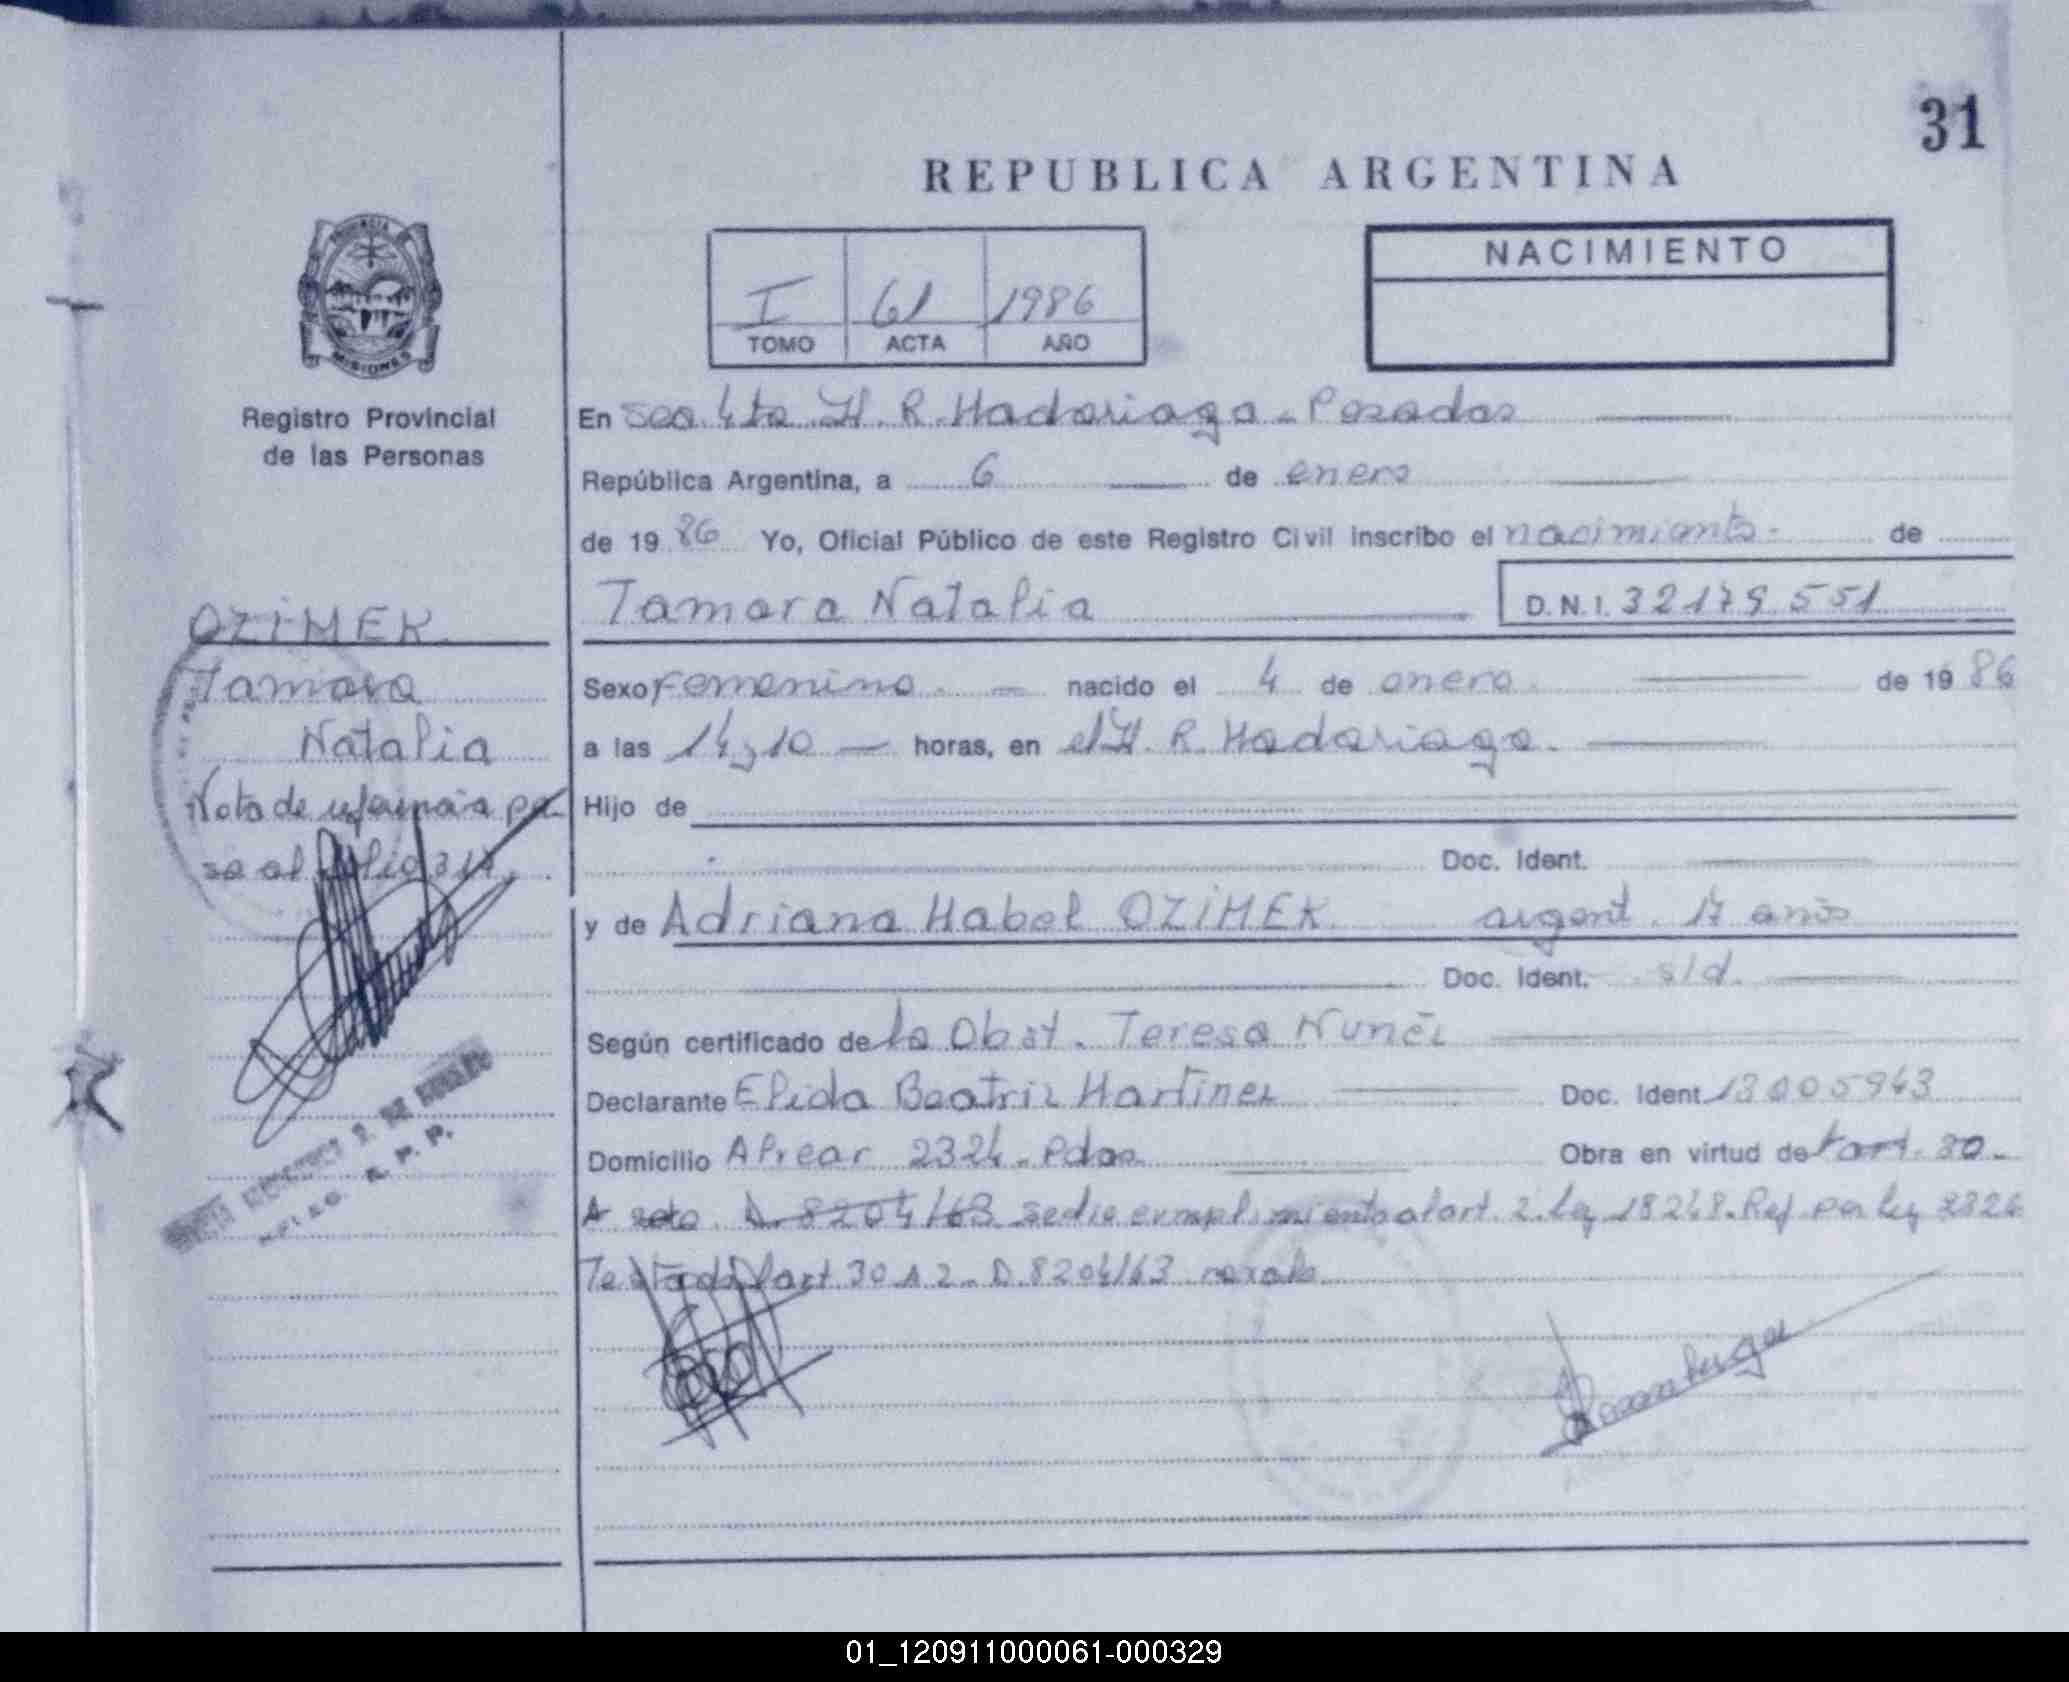 31
REPUBLICA ARGENTINA
PROVINCIA
MISIONES
Registro Provincial
de las Personas
NACIMIENTO
I 61 1986
TOMO ACTA AÑO
En Sec. 4ta H. R. Madariaga - Posadas
República Argentina, a 6 de enero
de 19 86 Yo, Oficial Público de este Registro Civil inscribo el nacimiento - de
Tamara Natalia D.N.I. 32179551
OZIMEK
Tamara
Natalia
Nota de referencia pa
se al folio 317.
Sexo Femenino. nacido el 4 de enero de 19 86
a las 14,10 horas, en el H. R. Madariaga.
Hijo de
Doc. Ident.
y de Adriana Mabel OZIMEK argent. 17 años
Doc. Ident. s/d.
Según certificado de la Obst. Teresa Nuñez
Declarante Elida Beatriz Martinez Doc. Ident 13005943
Domicilio Alvear 2324 - Pdas Obra en virtud de art. 30.
A D. 8204/63 se dio cumplimiento al art. 2. Ley 18248. Ref. por ley
Testado art 30 A 2 - D. 8204/63 no vale
R. P. P.
01_120911000061-000329